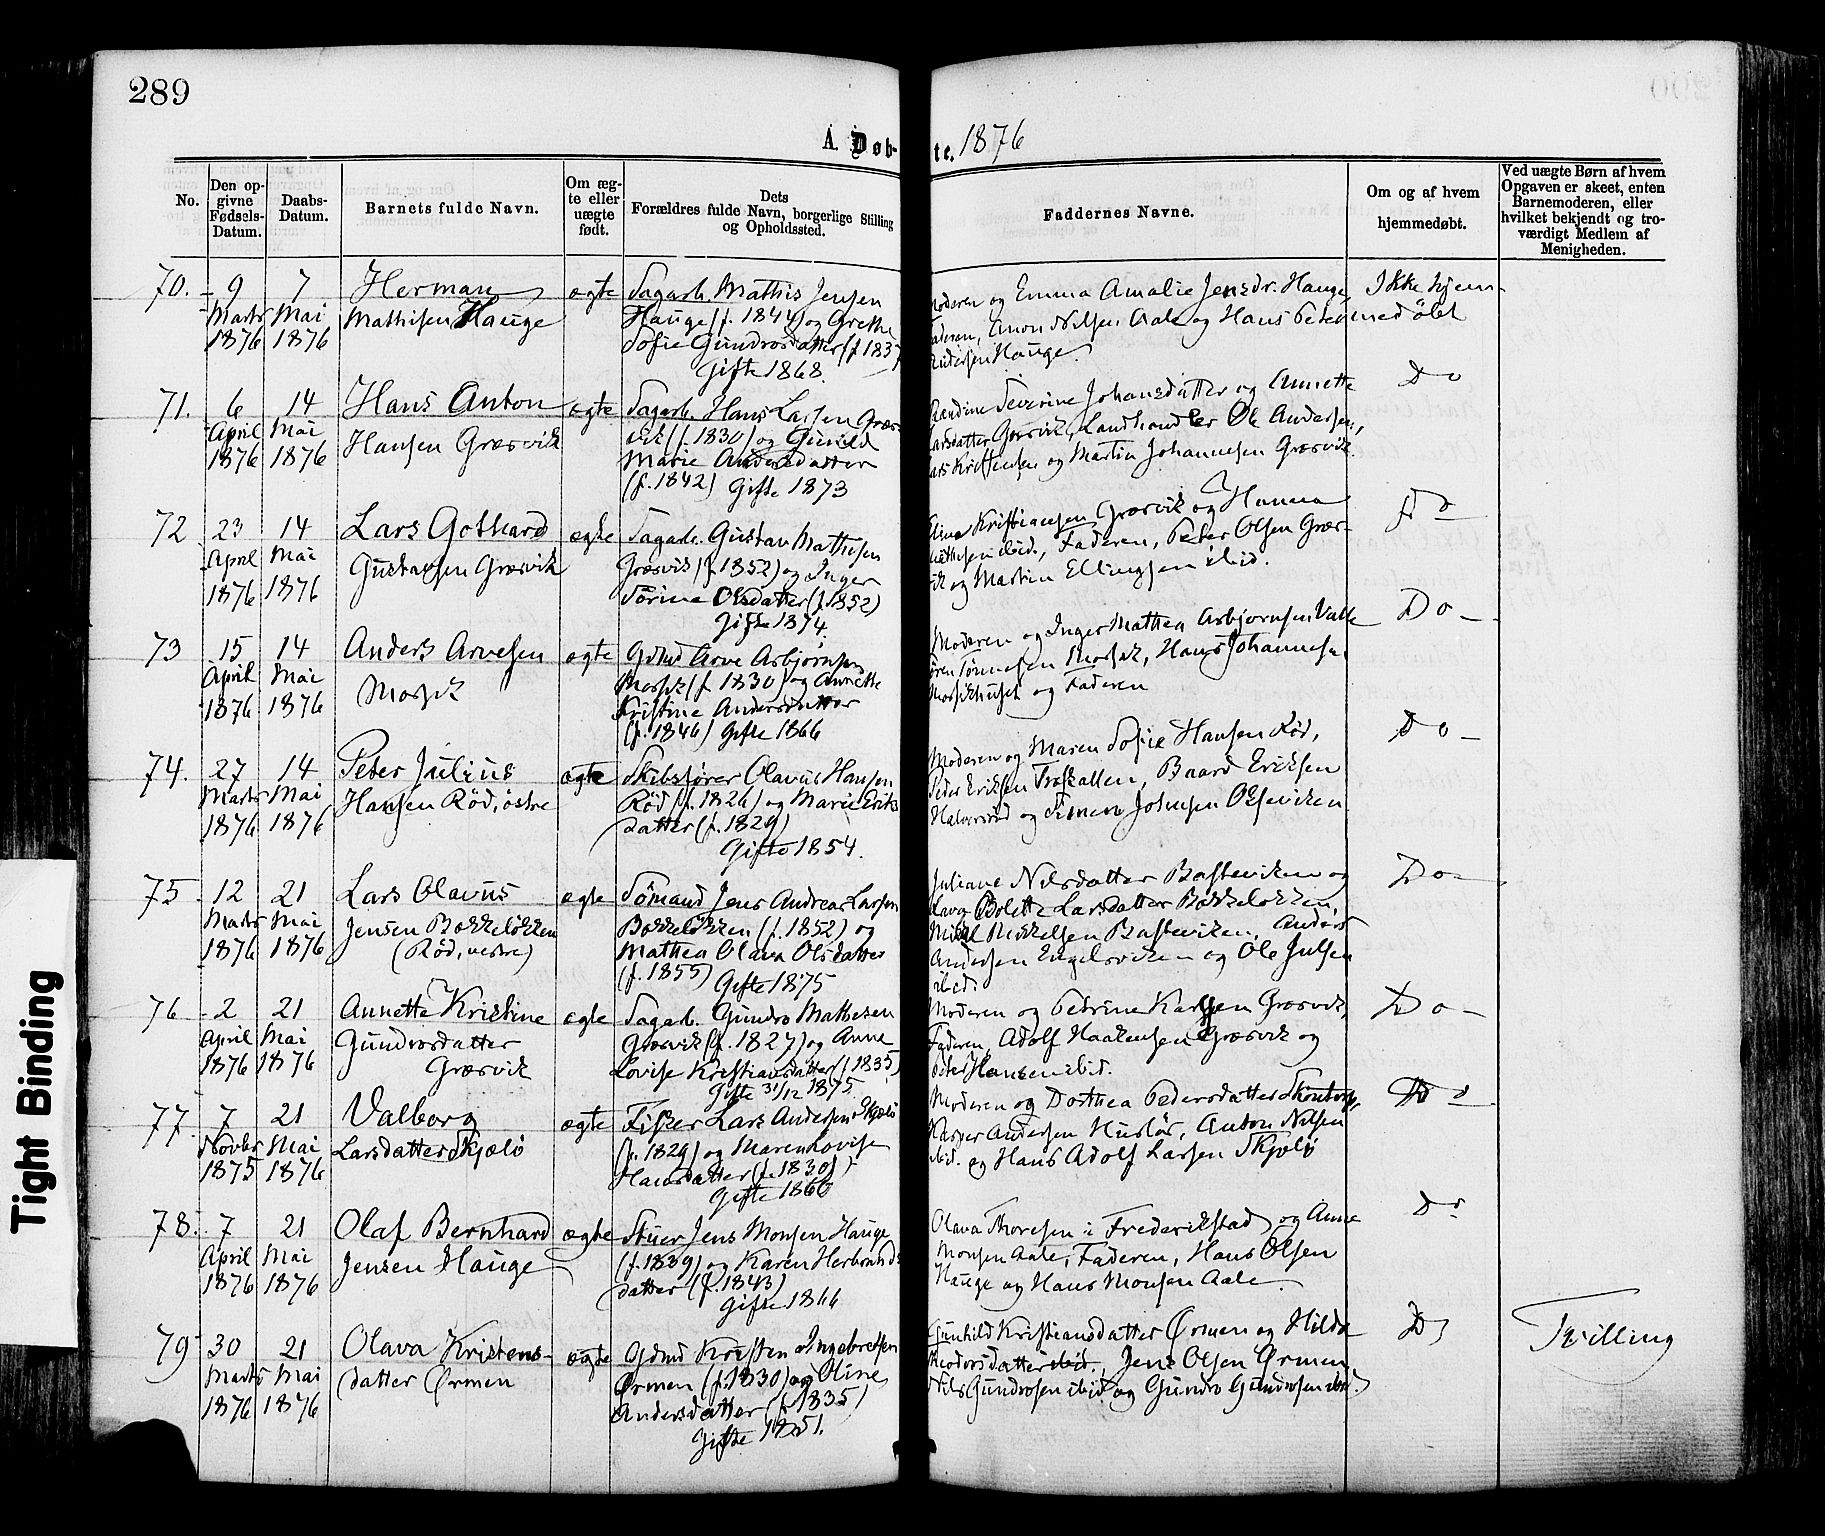 289
A. Døb- te. 1876
No.
Den opgivne Fødsels-Datum.
Daabs-Datum.
Barnets fulde Navn.
Om ægte eller uægte født.
Dets Forældres fulde Navn, borgerlige Stilling og Opholdssted.
Faddernes Navne.
Om og af hvem hjemmedøbt.
Ved uægte Børn af hvem Opgaven er skeet, enten Barnemoderen, eller hvilket bekjendt og troværdigt Medlem af Menigheden.
70. 9 Marts 1876
7 Mai 1876
Herman
Mathisen Hauge
ægte
Sagarb. Mathis Jensen
Hauge (f. 1844) og Grethe
Sofie Gundrosdatter (f 1837
Gifte 1868.
Moderen og Emma Amalie Jensdr. Hauge,
Faderen, Anon Nilsen Aale og Hans Peter
Andersen Hauge.
Ikke hjemmedøbt
71. 6 April 1876
14 Mai 1876
Hans Anton
Hansen Græsvik
ægte
Sagarb. Hans Larsen Græs-
vik (f. 1830) og Gunild
Marie Andersdatter
(f. 1842) Gifte 1873
Severine Johansdatter og Annette
Larsdatter Græsvik, Landhandler Ole Andersen,
Lars Kristensen og Martin Johannesen Græsvik.
Do
72 23 April 1876
14 Mai 1876
Lars Gothard
Gustavsen Græsvik
ægte
Sagarb. Gustav Mathisen
Græsvik (f. 1852) og Inger
Sørine Olsdatter (f. 1852)
Gifte 1874.
Elina Kristiansen Græsvik og Hanna
Mathisen ibid., Faderen, Peter Olsen Græs-
vik og Martin Ellingsen ibid.
Do
73 15 April 1876
14 Mai 1876
Anders Arvesen
Mosvik
ægte
Gdmd Arve Asbjørnsen
(f 1830) og Annette
Kristine Andersdatter
(f. 1846) Gifte 1866
Moderen og Inger Mathea Asbjørnsen Valle
Søren Tønnesen Hans Johannesen
og Faderen
Do
74. 27 Marts 1876
14 Mai 1876
Peter Julius
Hansen Rød, østre
ægte
Skibsfører Olavus Hansen
Rød (f. 1826) og Marie Eriks
datter (f. 1829)
Gifte 1854.
Moderen og Maren Sofie Hansen Rød,
Peder Eriksen Baard Eriksen
og Simen Johnsen
Do
75 12 Marts 1876
21 Mai 1876
Lars Olavus
Jensen Bakkeløkken
(Rød, vestre)
ægte
Sømand Jens Andreas Larsen
Bakkeløkken (f. 1852) og
Mathea Olava Olsdatter
(f. 1855) Gifte 1875
Juliane Nilsdatter Basteviken og
Lava Bolette Larsdatter Bakkeløkken,
Mikkelsen Basteviken, Anders
Andersen Engelsviken og Ole Julsen
ibid.
Do
76 2 April 1876
21 Mai 1876
Annette Kristine
Gundrosdatter
Græsvik
ægte
Sagarb. Gundro Mathesen
Græsvik (f. 1827) og Anne
Lovise Kristiansdatter (f 1835)
Gifte 31/12 1875.
Moderen og Petrine Karlsen Græsvik,
Faderen, Adolf Haakensen Græsvik og
Peter Hansen ibid.
Do
77. 7 Novbr 1875
21 Mai 1876
Valborg
Larsdatter Skjælø
ægte
Fisker Lars Andersen Skjælø
(f. 1829) og Maren Lovise
Hansdatter (f. 1830)
Gifte 1860
Moderen og Dorthea Pedersdatter
Kasper Andersen Huslør, Anton Nilsen
ibid. og Hans Adolf Larsen Skjælø
Do
78. 7 April 1876
21 Mai 1876
Olaf Bernhard
Jensen Hauge
ægte
Stuer Jens Monsen Hauge
(f. 1839) og Karen Herbrands
datter (f. 1843)
Gifte 1866
Olava Thoresen i Frederikstad og Anne
Monsen Aale, Faderen, Hans Olsen
Hauge og Hans Monsen Aale
Do
79 30 Marts 1876
21 Mai 1876
Olava Kristens-
datter Ørmen
ægte
Gdmd Kristen Ingebretsen
Ørmen (f. 1830) og Oline
Andersdatter (f 1835)
Gifte 1851.
Gunhild Kristiansdatter Ørmen og Hilda
Theodorsdatter ibid., Jens Olsen Ørmen,
Nils Gundrosen ibid og Gundro Gundrosen ibid.
Do
Tvilling
Tight Binding